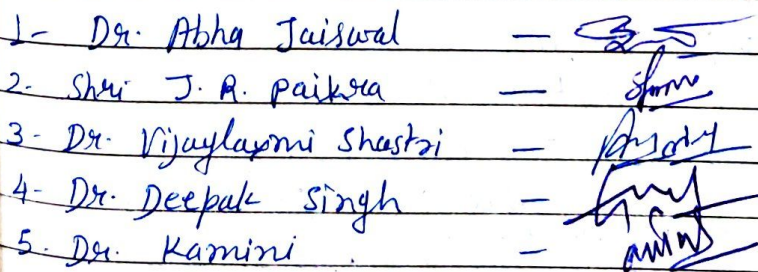 1- Dr. Abha Jaiswal -
2- Shri J. R. Paikra -
3- Dr. Vijaylaxmi Shastri -
4- Dr. Deepak Singh -
5. Dr. Kamini -